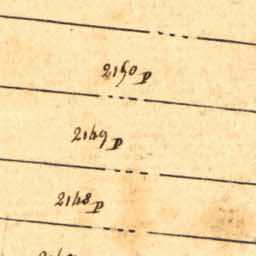 2150 p
2149 p
2148 p